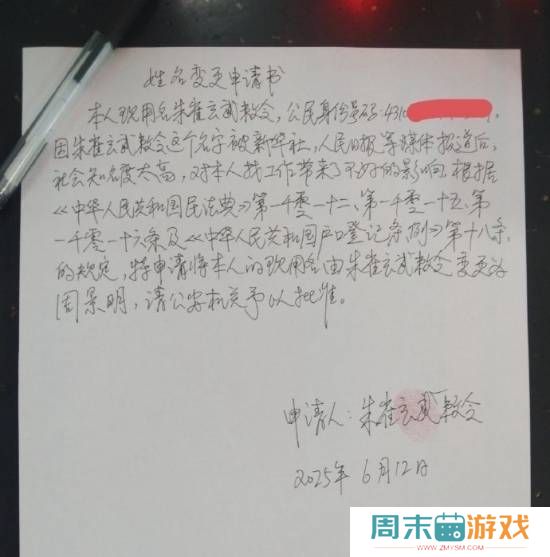 姓名变更申请书
本人现用名朱雀玄武敕令，公民身份号码：431
因朱雀玄武敕令这个名字被新华社，人民日报等媒体报道后，
社会知名度太高，对本人找工作带来了不好的影响。根据
《中华人民共和国民法典》第一千零一十二、第一千零一十五、第
一千零一十六条及《中华人民共和国户口登记条例》第十八条
的规定，特申请将本人的现用名由朱雀玄武敕令变更为
周景明，请公安机关予以批准。
申请人：朱雀玄武敕令
2025年6月12日
周末游戏
WWW.ZMYSM.COM